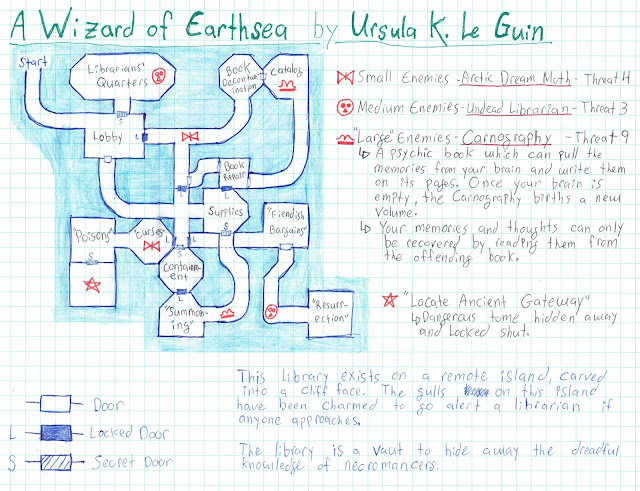 A Wizard of Earthsea by Ursula K. Le Guin
Start
Librarians'
Quarters
S
Book
Decontam-
ination
Catalog
Lobby
L
Book
Repair
L
L
"Poisons"
"Curses"
Supplies
"Fiendish
Bargains"
S
L
S
L
S
Containm-
ent
L
"Summon-
ing"
"Resurr-
ection"
Small Enemies - Arctic Dream Moth - Threat 4
Medium Enemies - Undead Librarian - Threat 3
"Large" Enemies - Carnography - Threat 9
↳ A psychic book which can pull the
memories from your brain and write them
on its pages. Once your brain is
empty, the Carnography births a new
volume.
↳ Your memories and thoughts can only
be recovered by reading them from
the offending book.
"Locate Ancient Gateway"
↳ Dangerous tome hidden away
and locked shut.
Door
L Locked Door
S Secret Door
This library exists on a remote island, carved
into a cliff face. The gulls on this island
have been charmed to go alert a librarian if
anyone approaches.
The library is a vaut to hide away the dreadful
knowledge of necromancers.